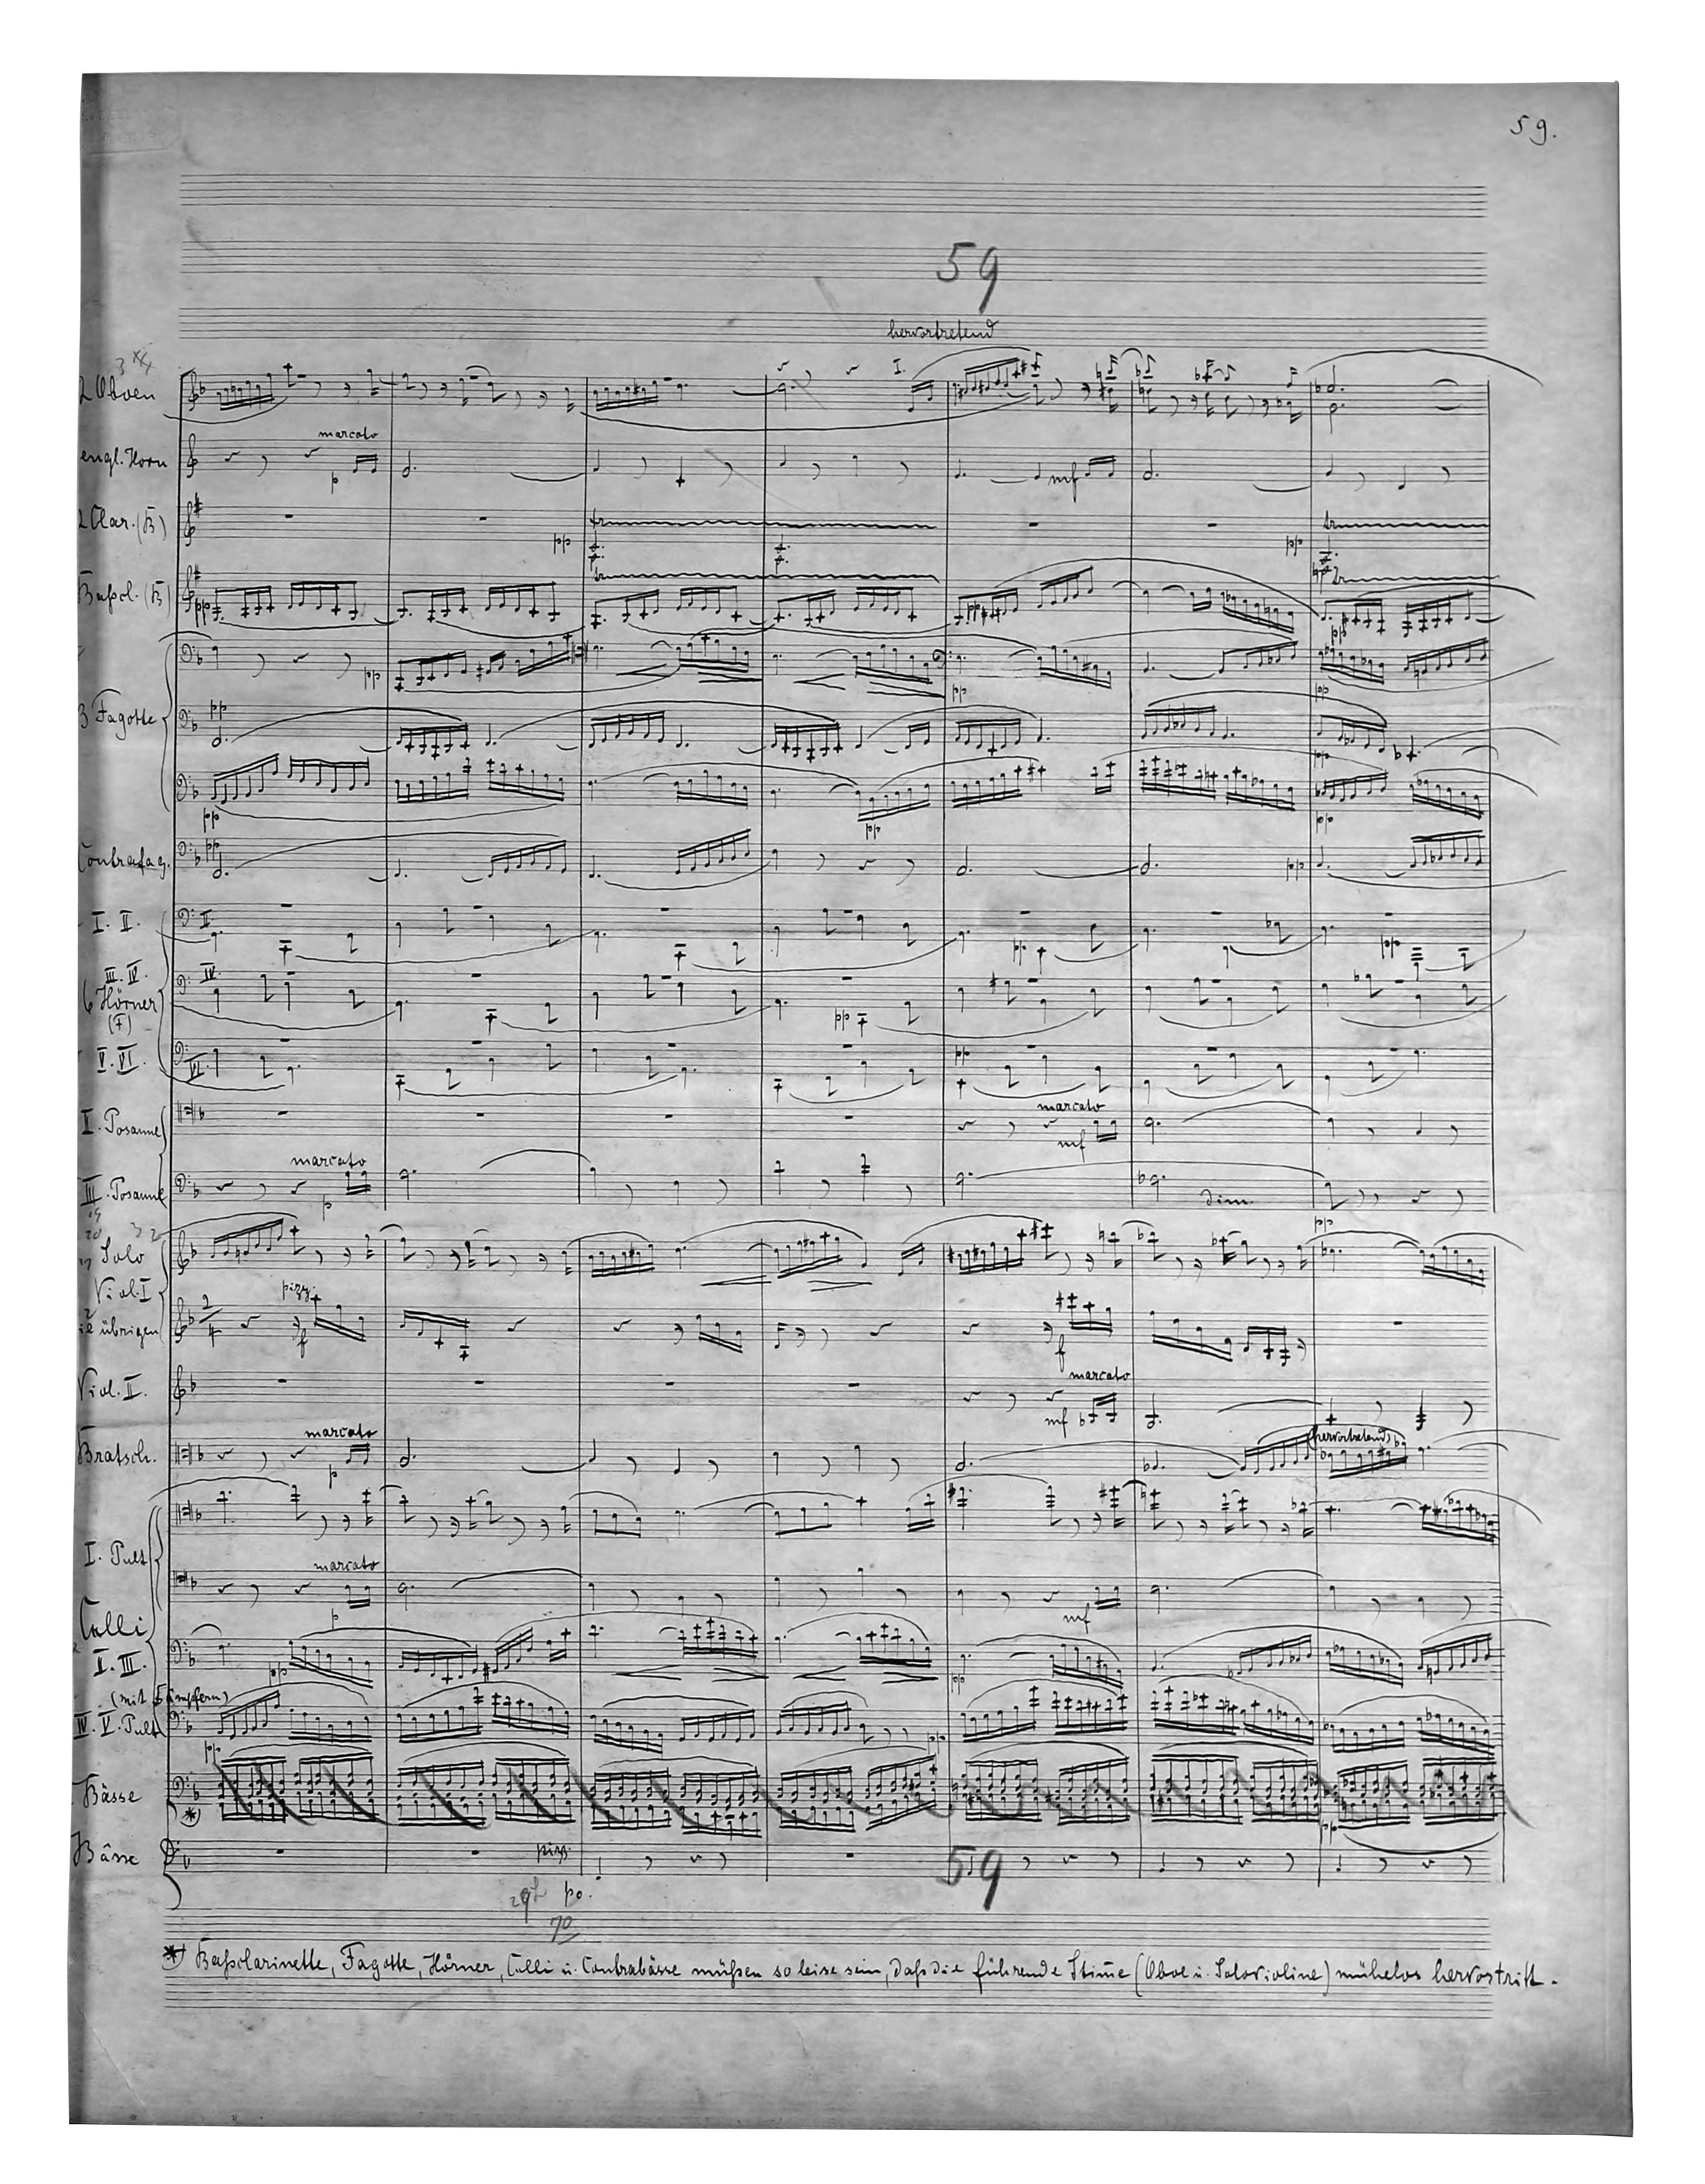 59.
59
hervortretend
2 Oboen
I.
engl. Horn
marcato
p
mf
2 Clar. (B)
pp
tr
tr
pp
Bassl. (B)
pp
tr
pp
pp
tr
pp
pp
pp
3 Fagotte
pp
pp
pp
pp
pp
Contrafag.
pp
pp
I. II.
I.
pp
pp
III. IV.
IV.
6 Hörner
(F)
pp
V. VI.
VI.
pp
I. Posaune
marcato
mf
III. Posaune
marcato
p
dim.
pp
Solo
Viol. I
die übrigen
2/4
pizz.
f
f
Viol. II.
marcato
mf
Bratsch.
marcato
p
(hervortretend)
I. Pult
marcato
p
mf
Celli
II. III.
pp
pp
(mit Dämpfern)
IV. V. Pult
pp
pp
Bässe
*)
pp
Bässe
pizz.
59
po.
70
*) Bassclarinette, Fagotte, Hörner, Celli u. Contrabässe müßen so leise sein, daß die führende Stimme (Oboe u. Solovioline) mühelos hervortritt.